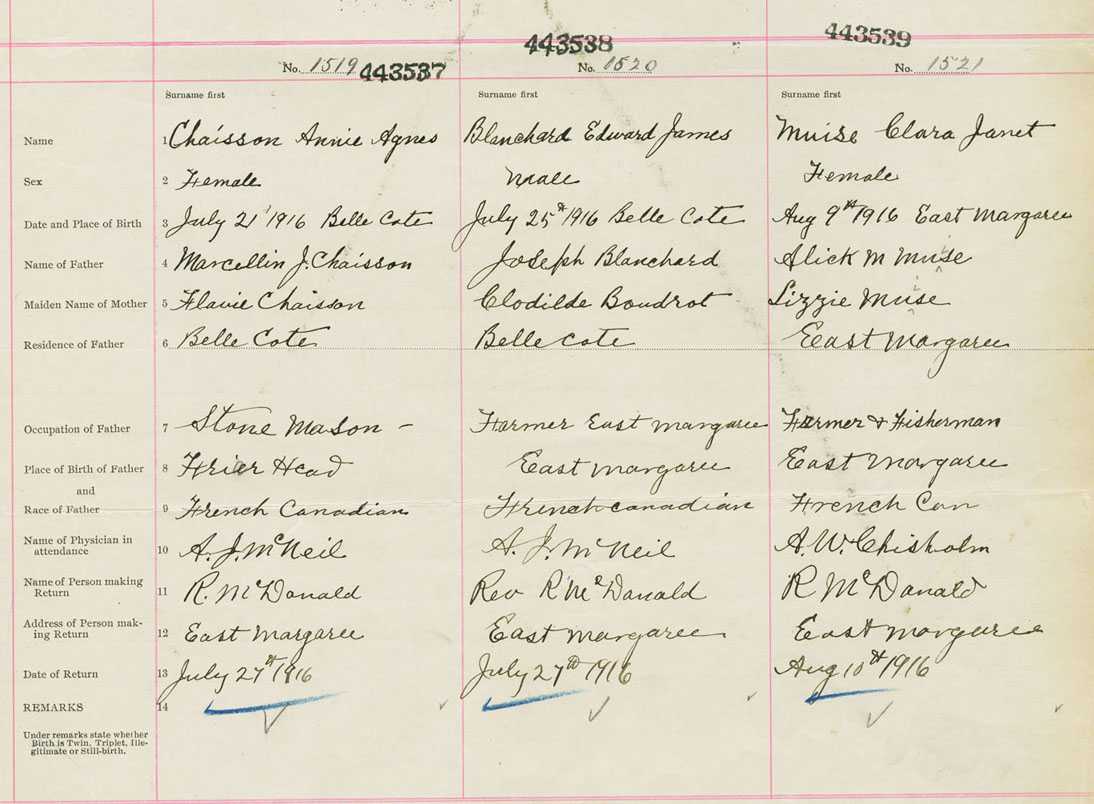 443538
443539
No. 1519 443537 No. 1520 No. 1521
Surname first Surname first Surname first
Name 1 Chaisson Annie Agnes Blanchard Edward James Muise Clara Janet
Sex 2 Female Male Female
Date and Place of Birth 3 July 21 1916 Belle Cote July 25th 1916 Belle Cote Aug 9th 1916 East Margaree
Name of Father 4 Marcellin J. Chaisson Joseph Blanchard Alick M Muise
Maiden Name of Mother 5 Flavie Chaisson Clodilde Boudrot Lizzie Muise
Residence of Father 6 Belle Cote Belle Cote East Margaree
Occupation of Father 7 Stone Mason – Farmer East Margaree Farmer & Fisherman
Place of Birth of Father 8 Frier Head East Margaree East Margaree
and
Race of Father 9 French Canadian French Canadian French Can
Name of Physician in
attendance 10 A. J. McNeil A. J. McNeil A. W. Chisholm
Name of Person making
Return 11 R. McDonald Rev R McDonald R McDonald
Address of Person mak-
ing Return 12 East Margaree East Margaree East Margaree
Date of Return 13 July 27th 1916 July 27th 1916 Aug 10th 1916
REMARKS 14
Under remarks state whether
Birth is Twin, Triplet, Ille-
gitimate or Still-birth.